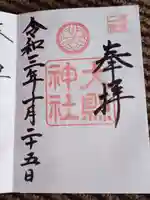 奉拝
大縣
神社
令和三年十月二十五日